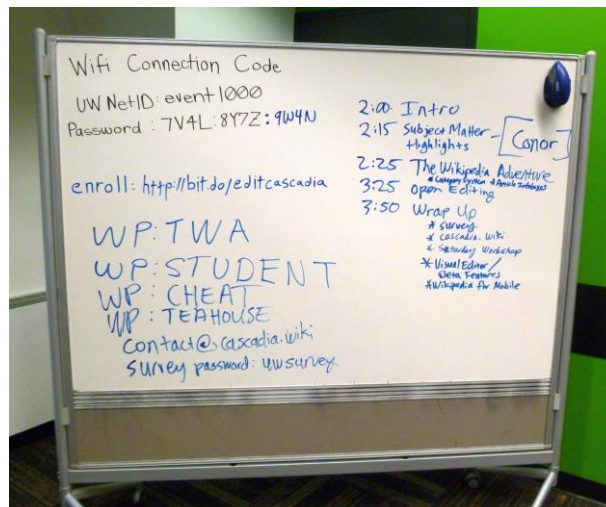 Wifi Connection Code
UW NetID: event1000
Password: 7V4L:8Y7Z:9W4N
enroll: http://bit.do/editcascadia
WP:TWA
WP:STUDENT
WP:CHEAT
WP:TEAHOUSE
contact@cascadia.wiki
survey password: uwsurvey
2:00 Intro
2:15 Subject Matter Highlights - Conor
2:25 The Wikipedia Adventure
* Category System * Article Infoboxes
3:25 Open Editing
3:50 Wrap Up
* Survey
* cascadia.wiki
* Saturday Workshop
* Visual Editor/
Beta Features
* Wikipedia for Mobile